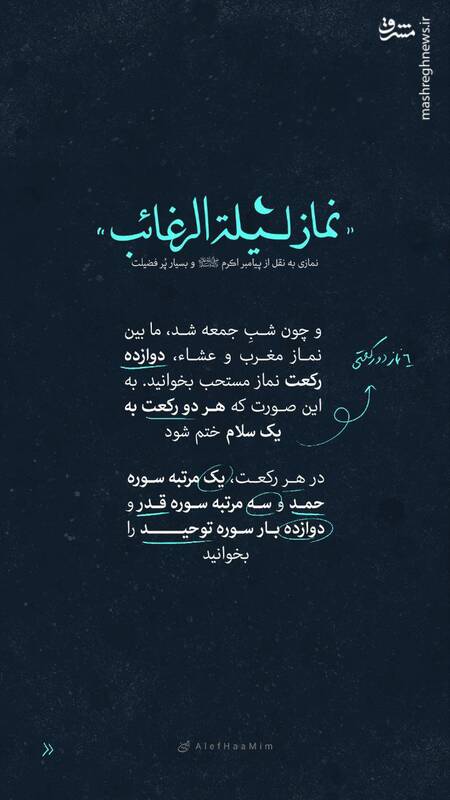 مشرق
mashreghnews.ir
«نماز لیلة الرغائب»
نمازی به نقل از پیامبر اکرم ﷺ و بسیار پُر فضیلت
و چون شبِ جمعه شد، ما بین
نماز مغرب و عشاء، دوازده
رکعت نماز مستحب بخوانید. به
این صورت که هر دو رکعت به
یک سلام ختم شود
٦ نماز دو رکعتی
در هر رکعت، یک مرتبه سوره
حمد و سه مرتبه سوره قدر و
دوازده بار سوره توحید را
بخوانید
AlefHaaMim